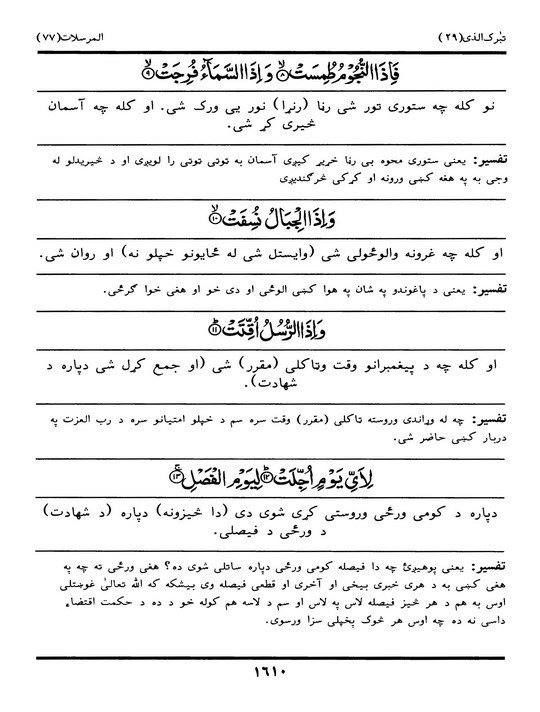 تبٰرک الذی(۲۹)
المرسلات(۷۷)
فَاِذَا النُّجُوْمُ طُمِسَتْ ۙ﴿۸﴾ وَ اِذَا السَّمَآءُ فُرِجَتْ ۙ﴿۹﴾
نو کله چه ستوری تور شی رڼا (رنړا) نور یی ورک شی. او کله چه آسمان
څیری کړ شی.
تفسیر: یعنی ستوری محوه بی رڼا خړیر کیږی آسمان به توتی توتی را لویږی او د څیریدلو له
وجی به په هغه کښی ورونه او کړکی څرگندیږی
وَ اِذَا الْجِبَالُ نُسِفَتْ ۙ﴿۱۰﴾
او کله چه غرونه والوځولی شی (وایستل شی له ځایونو خپلو نه) او روان شی.
تفسیر: یعنی د پاغوندو په شان په هوا کښی الوځی او دی خو او هغی خوا گرځی.
وَ اِذَا الرُّسُلُ اُقِّتَتْ ؕ﴿۱۱﴾
او کله چه د پیغمبرانو وقت وټاکلی (مقرر) شی (او جمع کړل شی دپاره د
شهادت).
تفسیر: چه له وړاندی وروسته ټاکلی (مقرر) وقت سره سم د خپلو امتیانو سره د رب العزت په
دربار کښی حاضر شی.
لِاَيِّ يَوْمٍ اُجِّلَتْ ؕ﴿۱۲﴾ لِيَوْمِ الْفَصْلِ ۚ﴿۱۳﴾
دپاره د کومی ورځی وروستی کړی شوی دی (دا څیزونه) دپاره (د شهادت)
د ورځی د فیصلی.
تفسیر: یعنی پوهیږئ چه دا فیصله کومی ورځی دپاره ساتلی شوی ده؟ هغی ورځی ته چه په
هغی کښی به د هری خبری بیخی او آخری او قطعی فیصله وی بیشکه که الله تعالیٰ غوښتلی
اوس به هم د هر څیز فیصله لاس په لاس او سم د لاسه هم کوله خو د ده د حکمت اقتضاء
داسی نه ده چه اوس هر څوک پخپلی سزا ورسوی.
۱۶۱۰